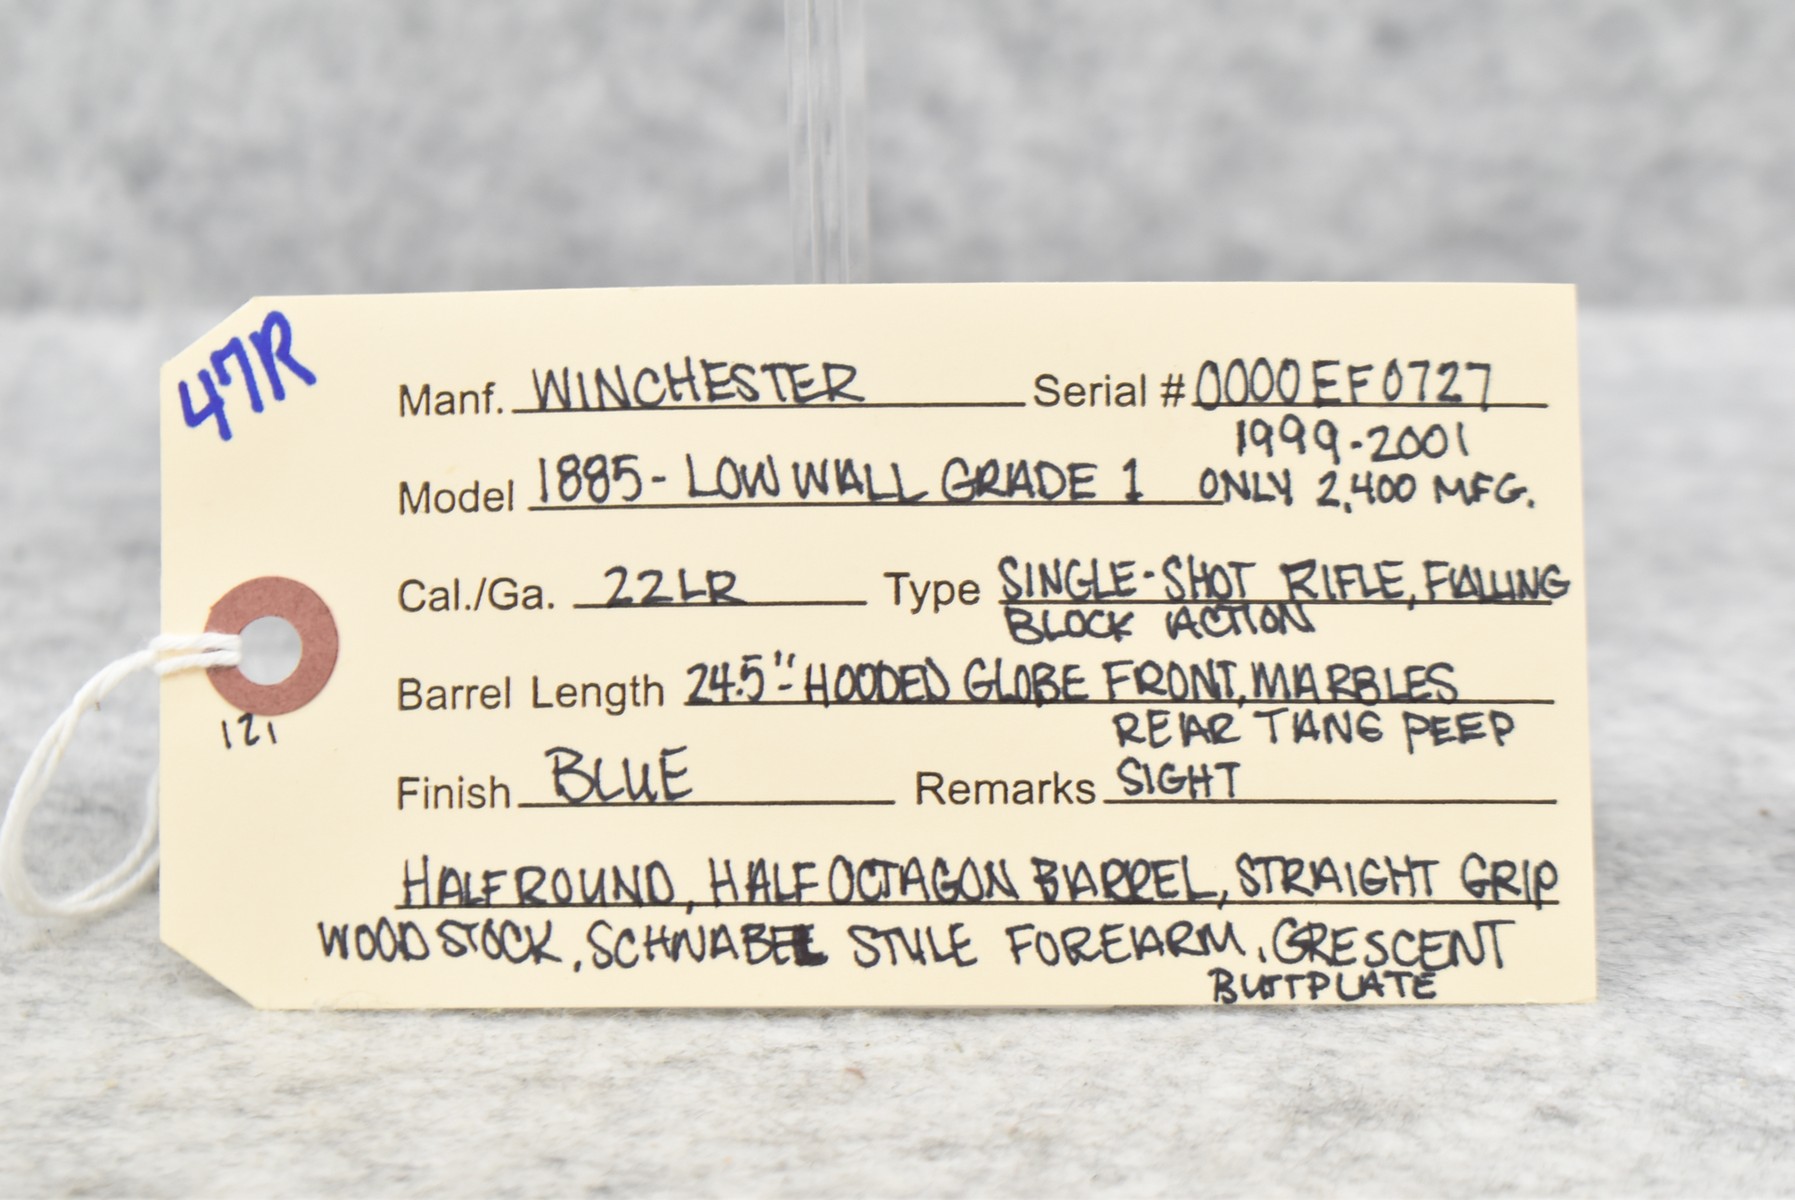 47R
Manf. WINCHESTER Serial # 0000EF0727
1999-2001
Model 1885- LOW WALL GRADE 1 ONLY 2,400 MFG.
Cal./Ga. 22LR Type SINGLE-SHOT RIFLE, FALLING
BLOCK ACTION
Barrel Length 24.5"- HOODED GLOBE FRONT, MARBLES
121
REAR TANG PEEP
Finish BLUE Remarks SIGHT
HALF ROUND, HALF OCTAGON BARREL, STRAIGHT GRIP
WOOD STOCK, SCHNABEL STYLE FOREARM, CRESCENT
BUTTPLATE